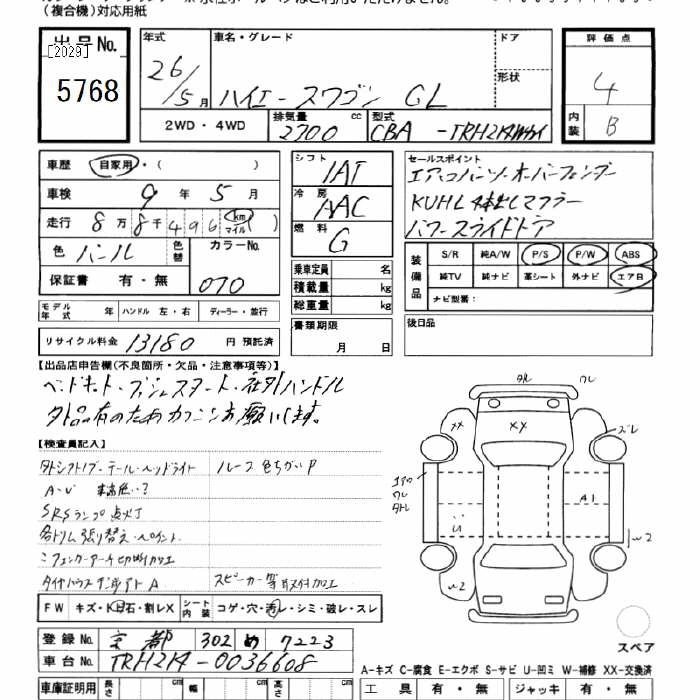 (複合機)対応用紙
出品No.
[2029]
5768
年式
26/5月
車名・グレード
ハイエースワゴン GL
ドア
形状
評価点
4
内装
B
2WD・4WD
排気量 cc
2700
型式
CBA -TRH214W
車歴 自家用・( )
車検 9年5月
走行 8万8千496 km マイル
色 パール
色替
カラーNo.
070
保証書 有・無
シフト IAT
冷房 AAC
燃料 G
乗車定員 名
積載量 kg
総重量 kg
セールスポイント
エアロバンパー オーバーフェンダー
KUHL 4本出しマフラー
パワースライドドア
装備品
S/R 純A/W P/S P/W ABS
純TV 純ナビ 革シート 外ナビ エアB
ナビ型番：
モデル年式 年 ハンドル 左・右 ディーラー・並行
書類期限
月 日
後日品
リサイクル料金 13180 円 預託済
【出品店申告欄(不良箇所・欠品・注意事項等)】
ベッドキット・プッシュスタート・社外ハンドル
外品有のため カクニンお願いします。
【検査員記入】
外シフトノブ・テール・ヘッドライト
ルーフ色ちがいP
A-V 車高低い?
SRSランプ点灯
各トリム張り替え・ペイント
フェンダーアーチ切断加工
タイヤハウス A
スピーカー等取付加工
FW キズ・飛石・割レX
シート内装 コゲ・穴・汚レ・シミ・破レ・スレ
登録No. 京都 302 め 7223
車台No. TRH214-0036608
車庫証明用 長さ cm 幅 cm 高さ cm
外レ
ワレ
XX
XX
ズレ
エアロ
ワレ
外レ
A1
U
W2
W2
スペア
A-キズ C-腐食 E-エクボ S-サビ U-凹ミ W-補修 XX-交換済
工具 有・無 ジャッキ 有・無